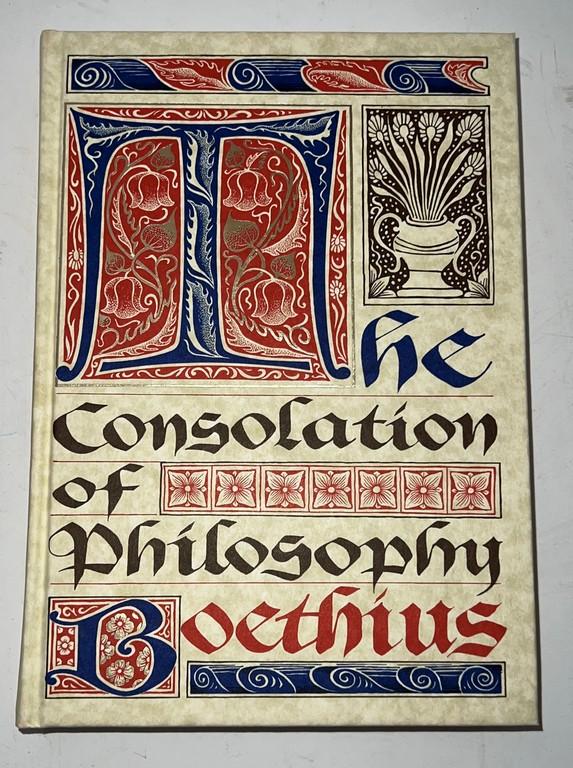 The
Consolation
of
Philosophy
Boethius